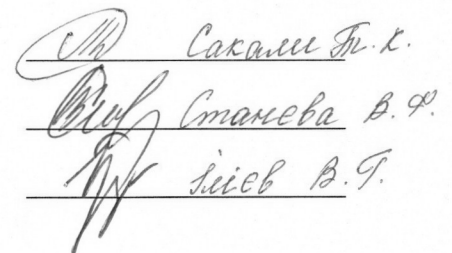 Сакали Т. К.
Станева В. Ф.
Ілієв В. Г.